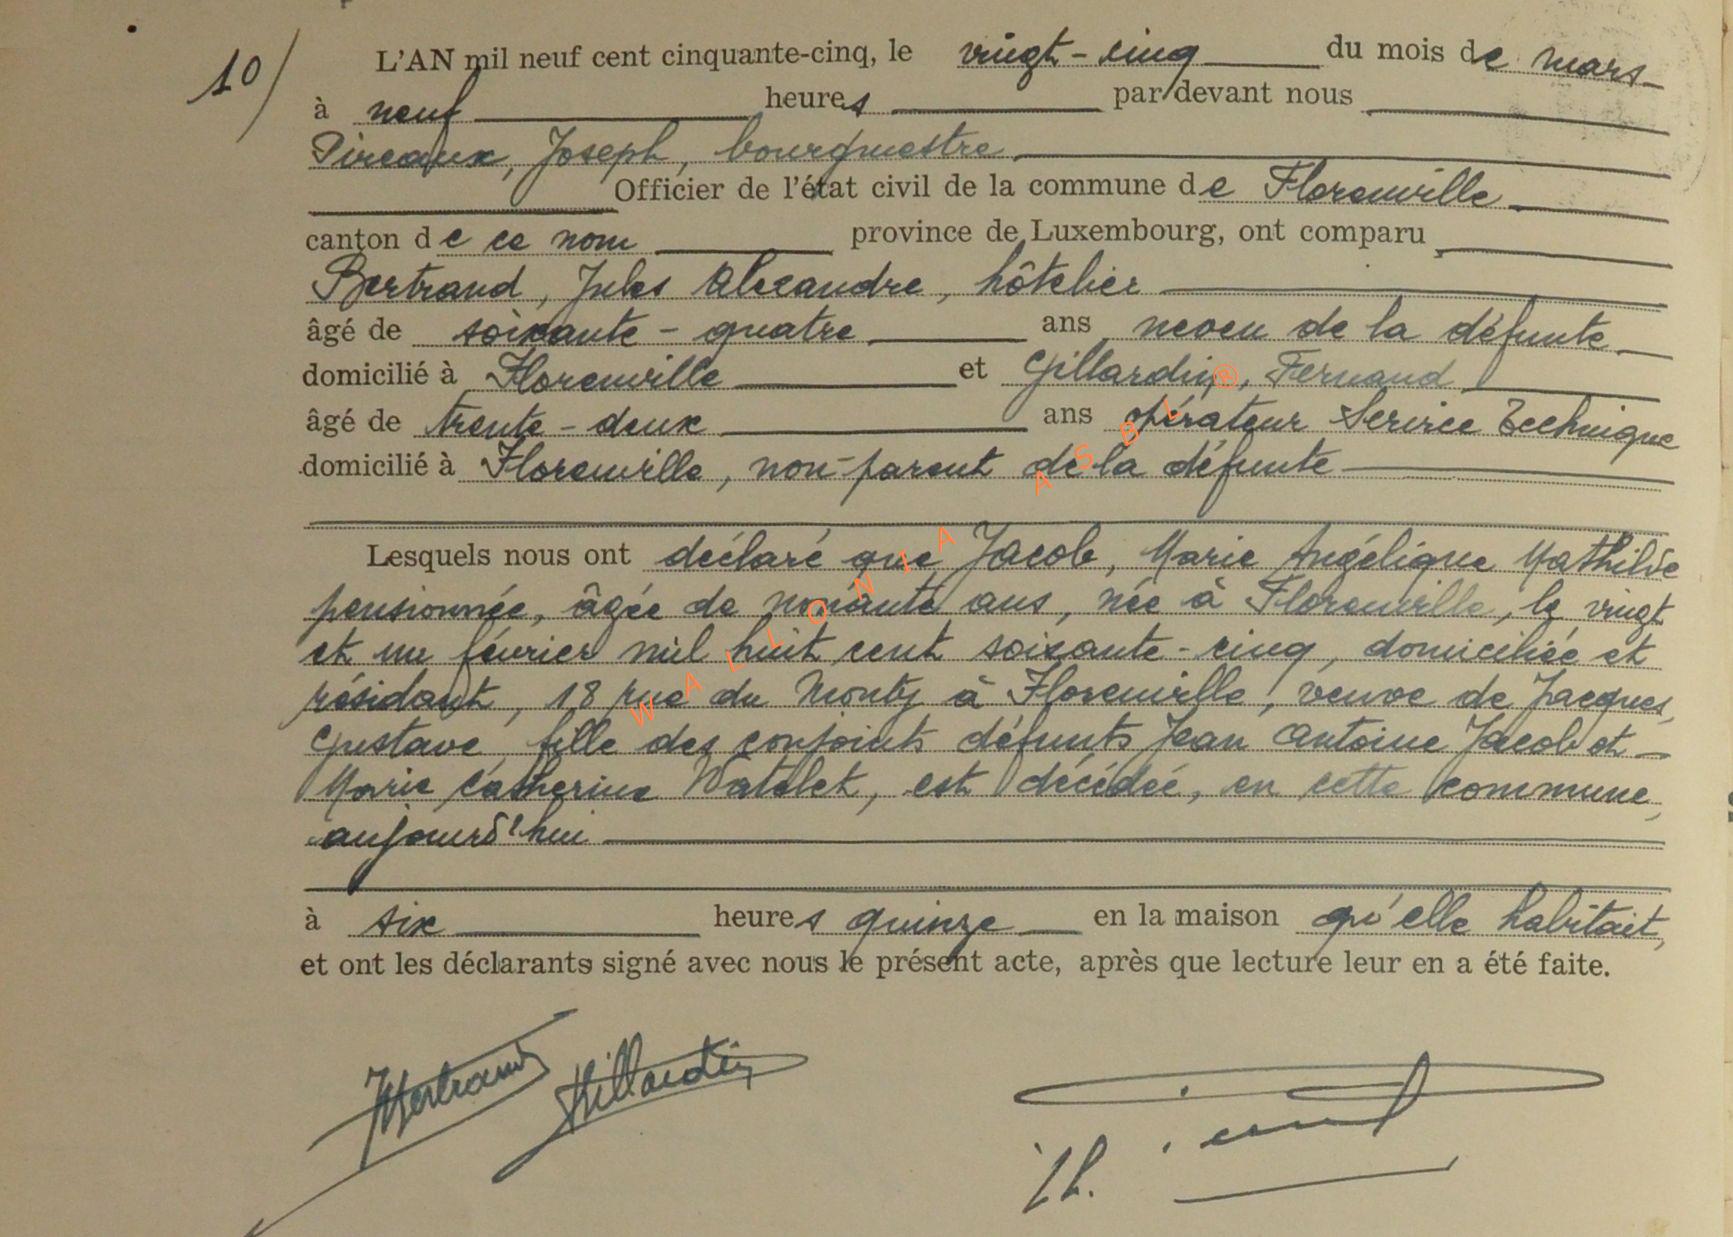 10/
L'AN mil neuf cent cinquante-cinq, le vingt-cinq du mois de mars
à neuf heures par devant nous
Pireaux, Joseph, bourgmestre
Officier de l'état civil de la commune de Florenville
canton de ce nom province de Luxembourg, ont comparu
Bertrand, Jules Alexandre, hôtelier
âgé de soixante-quatre ans neveu de la défunte
domicilié à Florenville et Gillardin, Fernand
âgé de trente-deux ans opérateur Service Technique
domicilié à Florenville, non-parent de la défunte
Lesquels nous ont déclaré que Jacob, Marie Angélique Mathilde
pensionnée, âgée de nonante ans, née à Florenville, le vingt
et un février mil huit cent soixante-cinq, domiciliée et
résidant, 18 rue du Monty à Florenville, veuve de Jacques,
Gustave, fille des conjoints défunts Jean Antoine Jacob et
Marie Catherine Watelet, est décédée, en cette commune,
aujourd'hui
à six heures quinze en la maison qu'elle habitait,
et ont les déclarants signé avec nous le présent acte, après que lecture leur en a été faite.
JBertrand Gillardin
WALLONIA ASBL ®